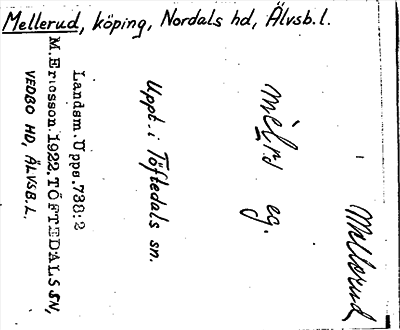 Mellerud, köping, Nordals hd, Älvsb.l.
Mellerud
eg.
Uppt. i Töftedals sn.
Landsm. Upps. 738:2
M. Ericsson. 1922. TÖFTEDALS SN,
VEDBO HD, ÄLVSB.L.